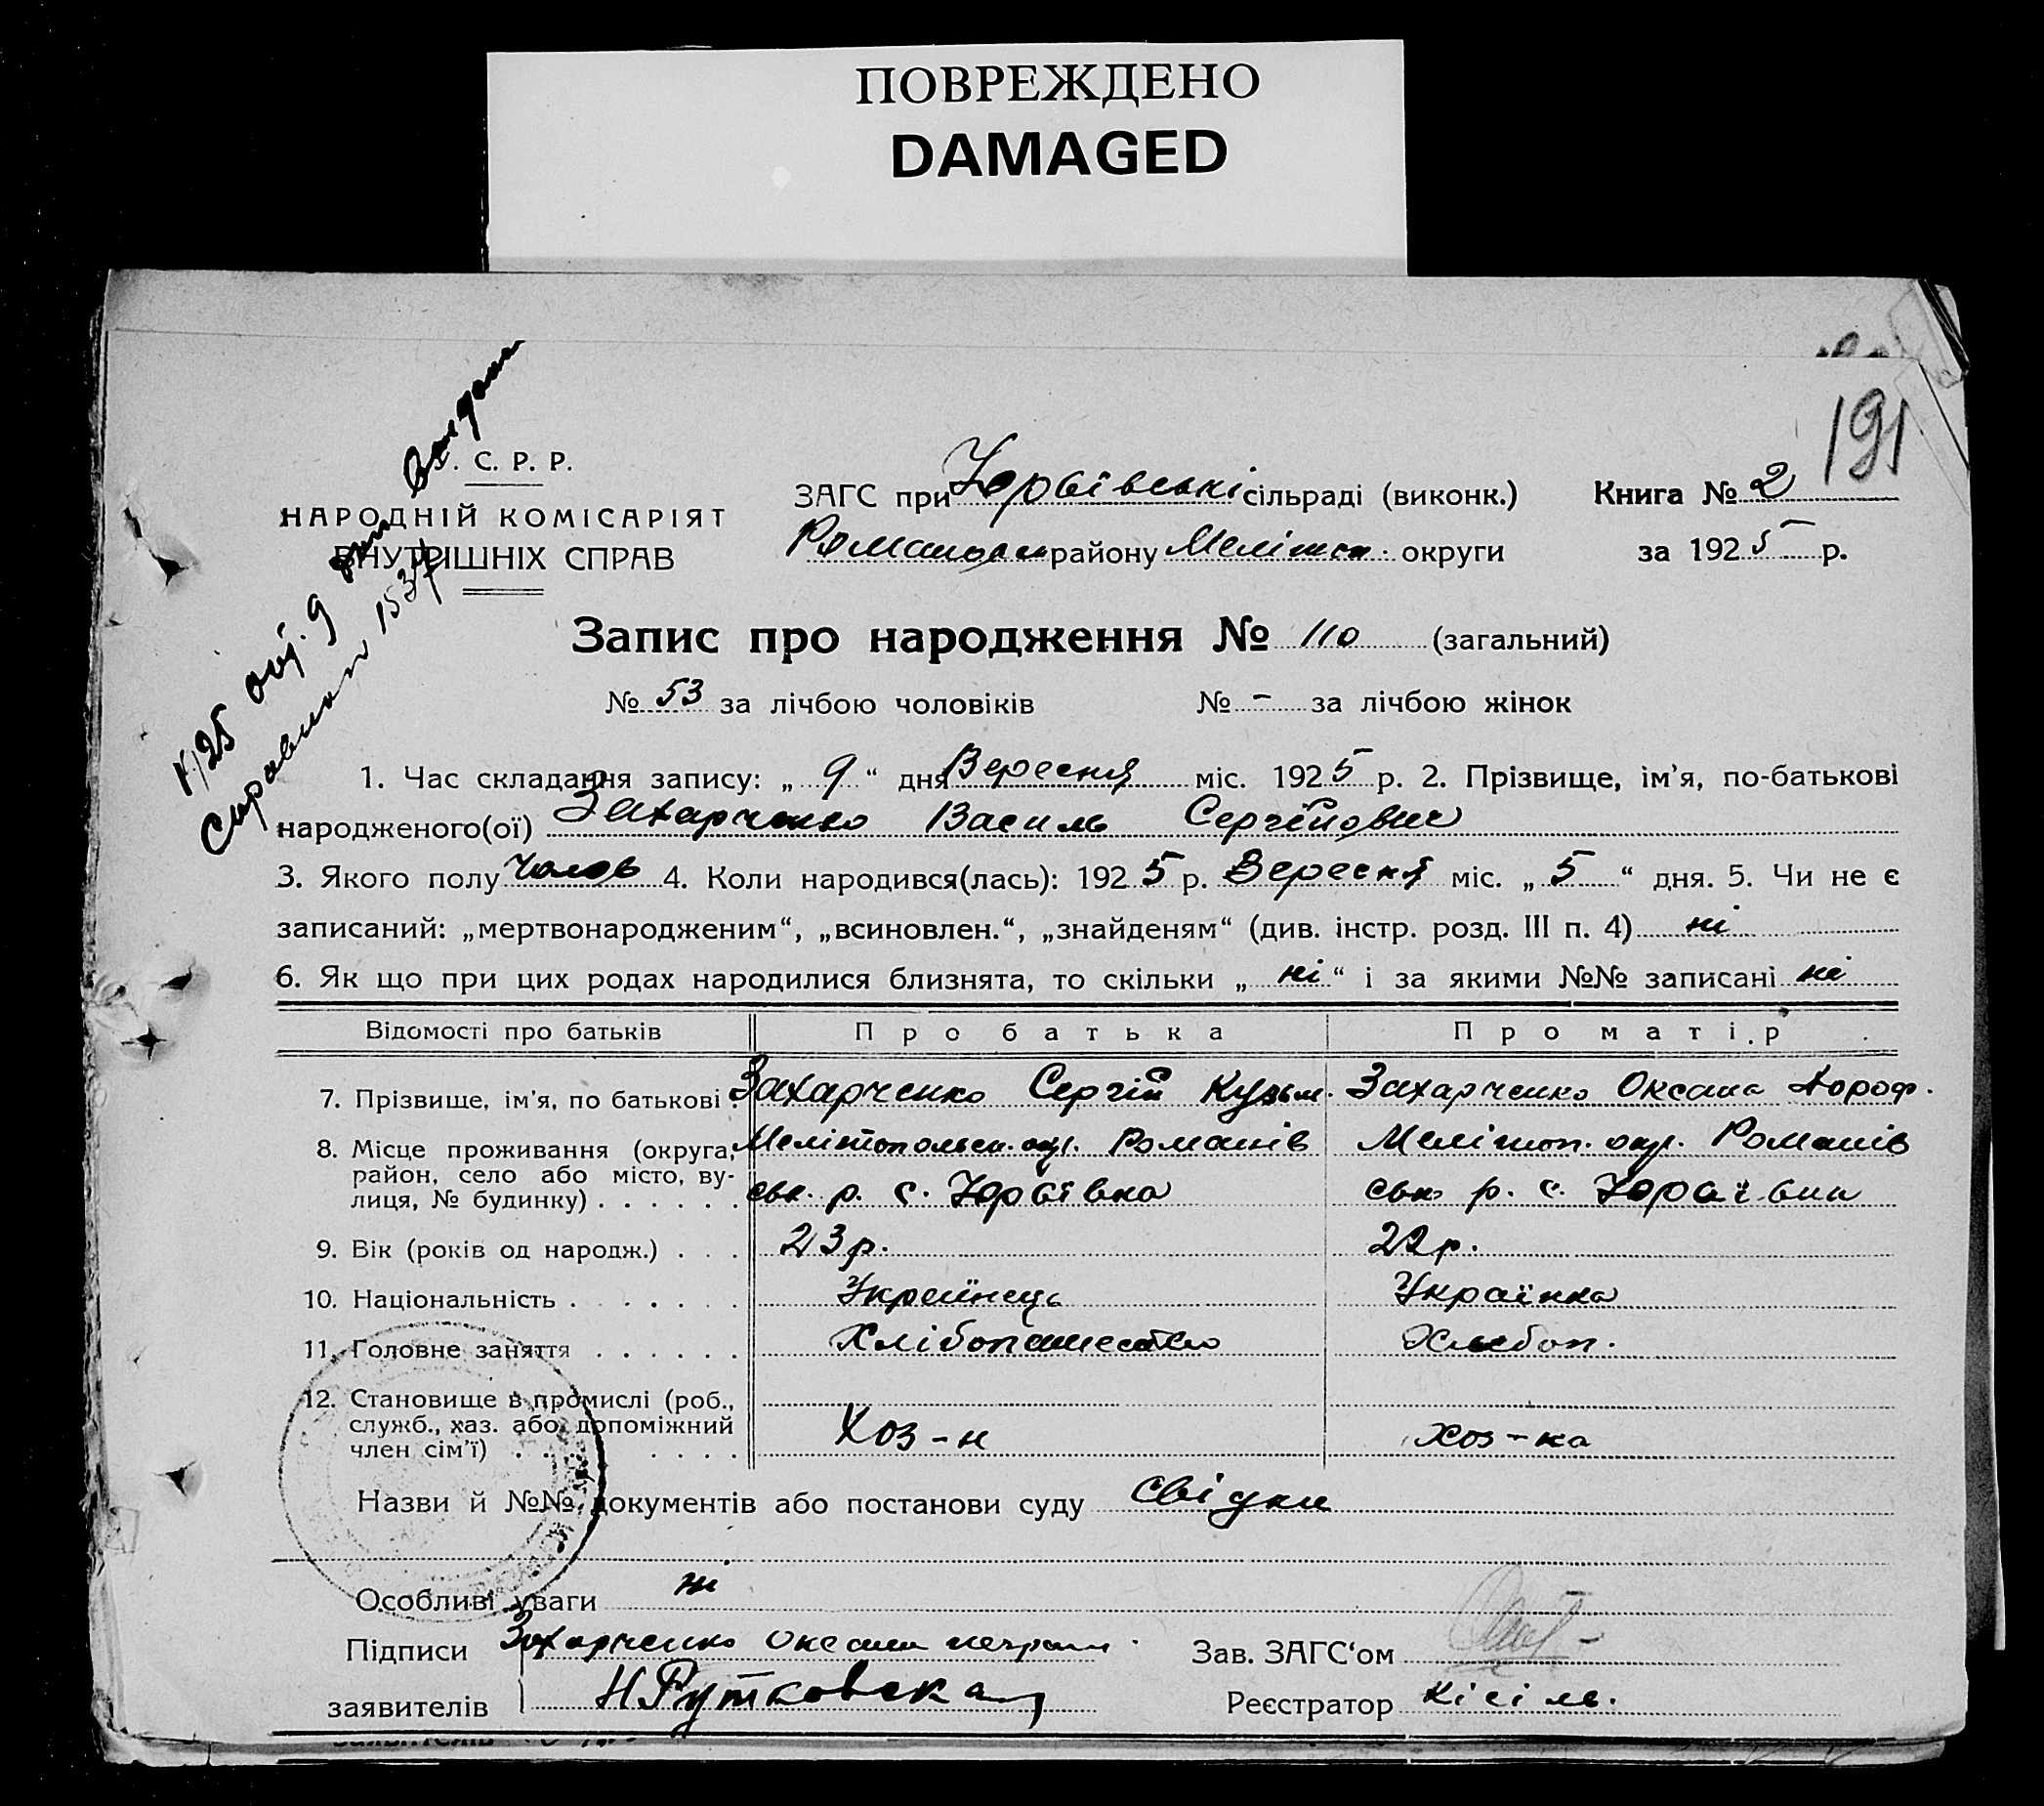 ПОВРЕЖДЕНО
DAMAGED
191
У. С. Р. Р.
НАРОДНІЙ КОМІСАРІЯТ
ВНУТРІШНІХ СПРАВ
ЗАГС при Юрʼївські сільраді (виконк.)
району Меліт. округи
Книга № 2
за 1925 р.
Запис про народження № 110 (загальний)
№ 53 за лічбою чоловіків № - за лічбою жінок
1. Час складання запису: „ 9 “ дня Вересня міс. 1925 р. 2. Прізвище, ім'я, по-батькові
народженого(ої) Захарченко Василь Сергійович
3. Якого полу Чолов 4. Коли народився(лась): 1925 р. Вересня міс. „ 5 “ дня. 5. Чи не є
записаний: „мертвонародженим“, „всиновлен.“, „знайденям“ (див. інстр. розд. III п. 4) ні
6. Як що при цих родах народилися близнята, то скільки „ ні “ і за якими №№ записані ні
Відомості про батьків Про батька Про матір
7. Прізвище, ім'я, по батькові . Захарченко Сергій Кузьм. Захарченко Оксана Дороф.
8. Місце проживання (округа, Мелітопольськ. окр. Романів Меліт. окр. Романів
район, село або місто, ву-
лиця, № будинку) . . . . . . ськ. р. с. Юраївка ськ р. с. Юраївка
9. Вік (років од народж.) . . . 23 р. 22 р.
10. Національність . . . . . . . Українець Українка
11. Головне заняття . . . . . . Хлібопашество Хлібоп.
12. Становище в промислі (роб.,
служб., хаз. або допоміжний
член сім'ї) . . . . . . Хоз-н Хоз-ка
Назви й №№ документів або постанови суду Свідки
Особливі уваги ні
Підписи Захарченко Оксана неграм. Зав. ЗАГС'ом
заявителів Н. Рутковская Реєстратор Кісіль.